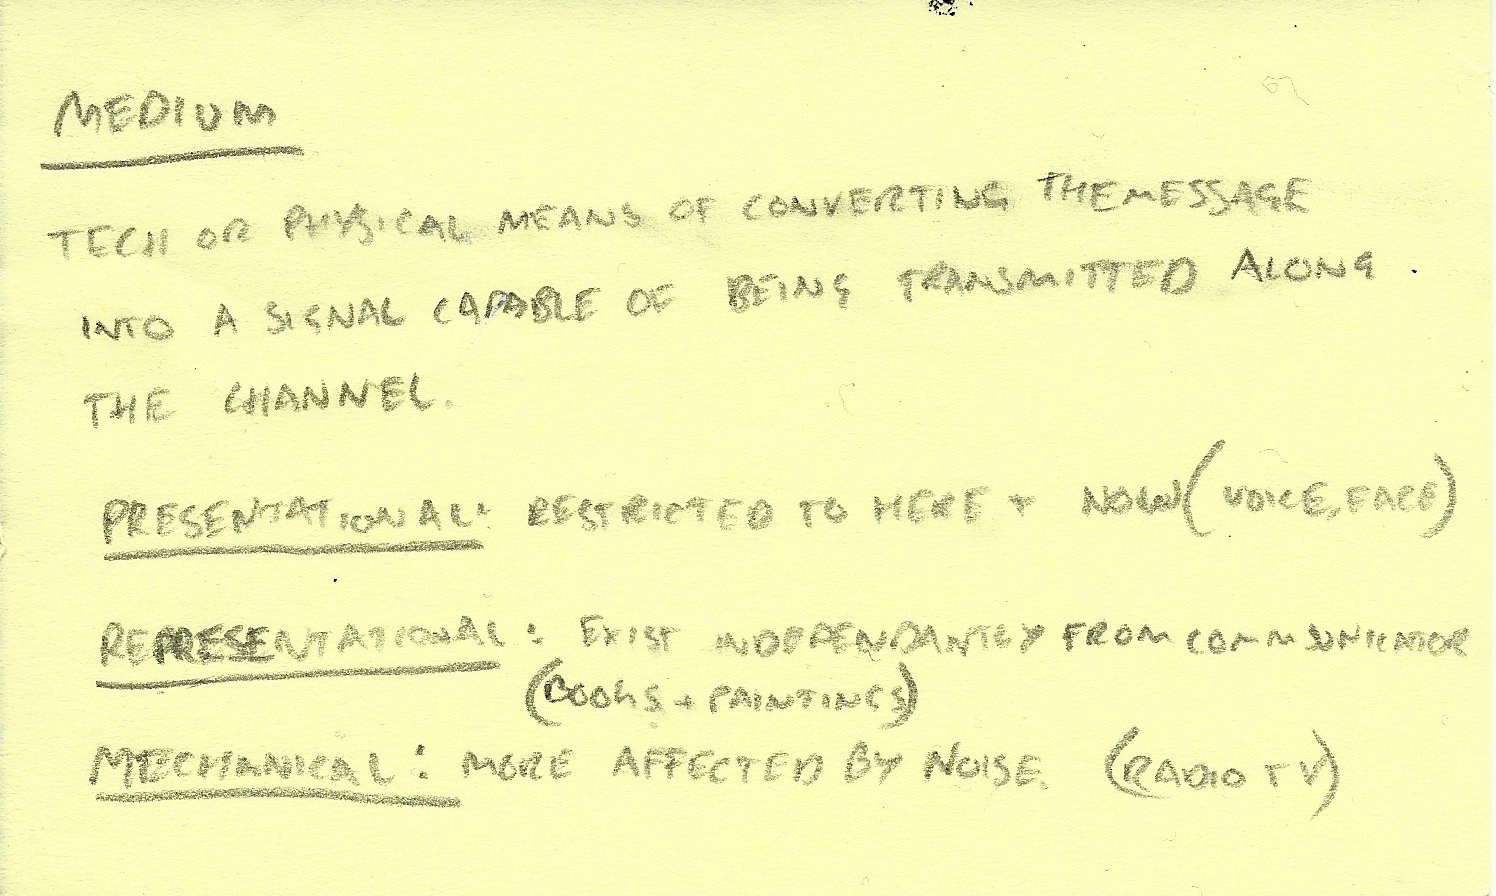 MEDIUM
TECH OR PHYSICAL MEANS OF CONVERTING THE MESSAGE
INTO A SIGNAL CAPABLE OF BEING TRANSMITTED ALONG
THE CHANNEL.
PRESENTATIONAL: RESTRICTED TO HERE + NOW (VOICE, FACE)
REPRESENTATIONAL: EXIST INDEPENDANTLY FROM COMMUNICATOR
(BOOKS + PAINTINGS)
MECHANICAL: MORE AFFECTED BY NOISE. (RADIO TV)